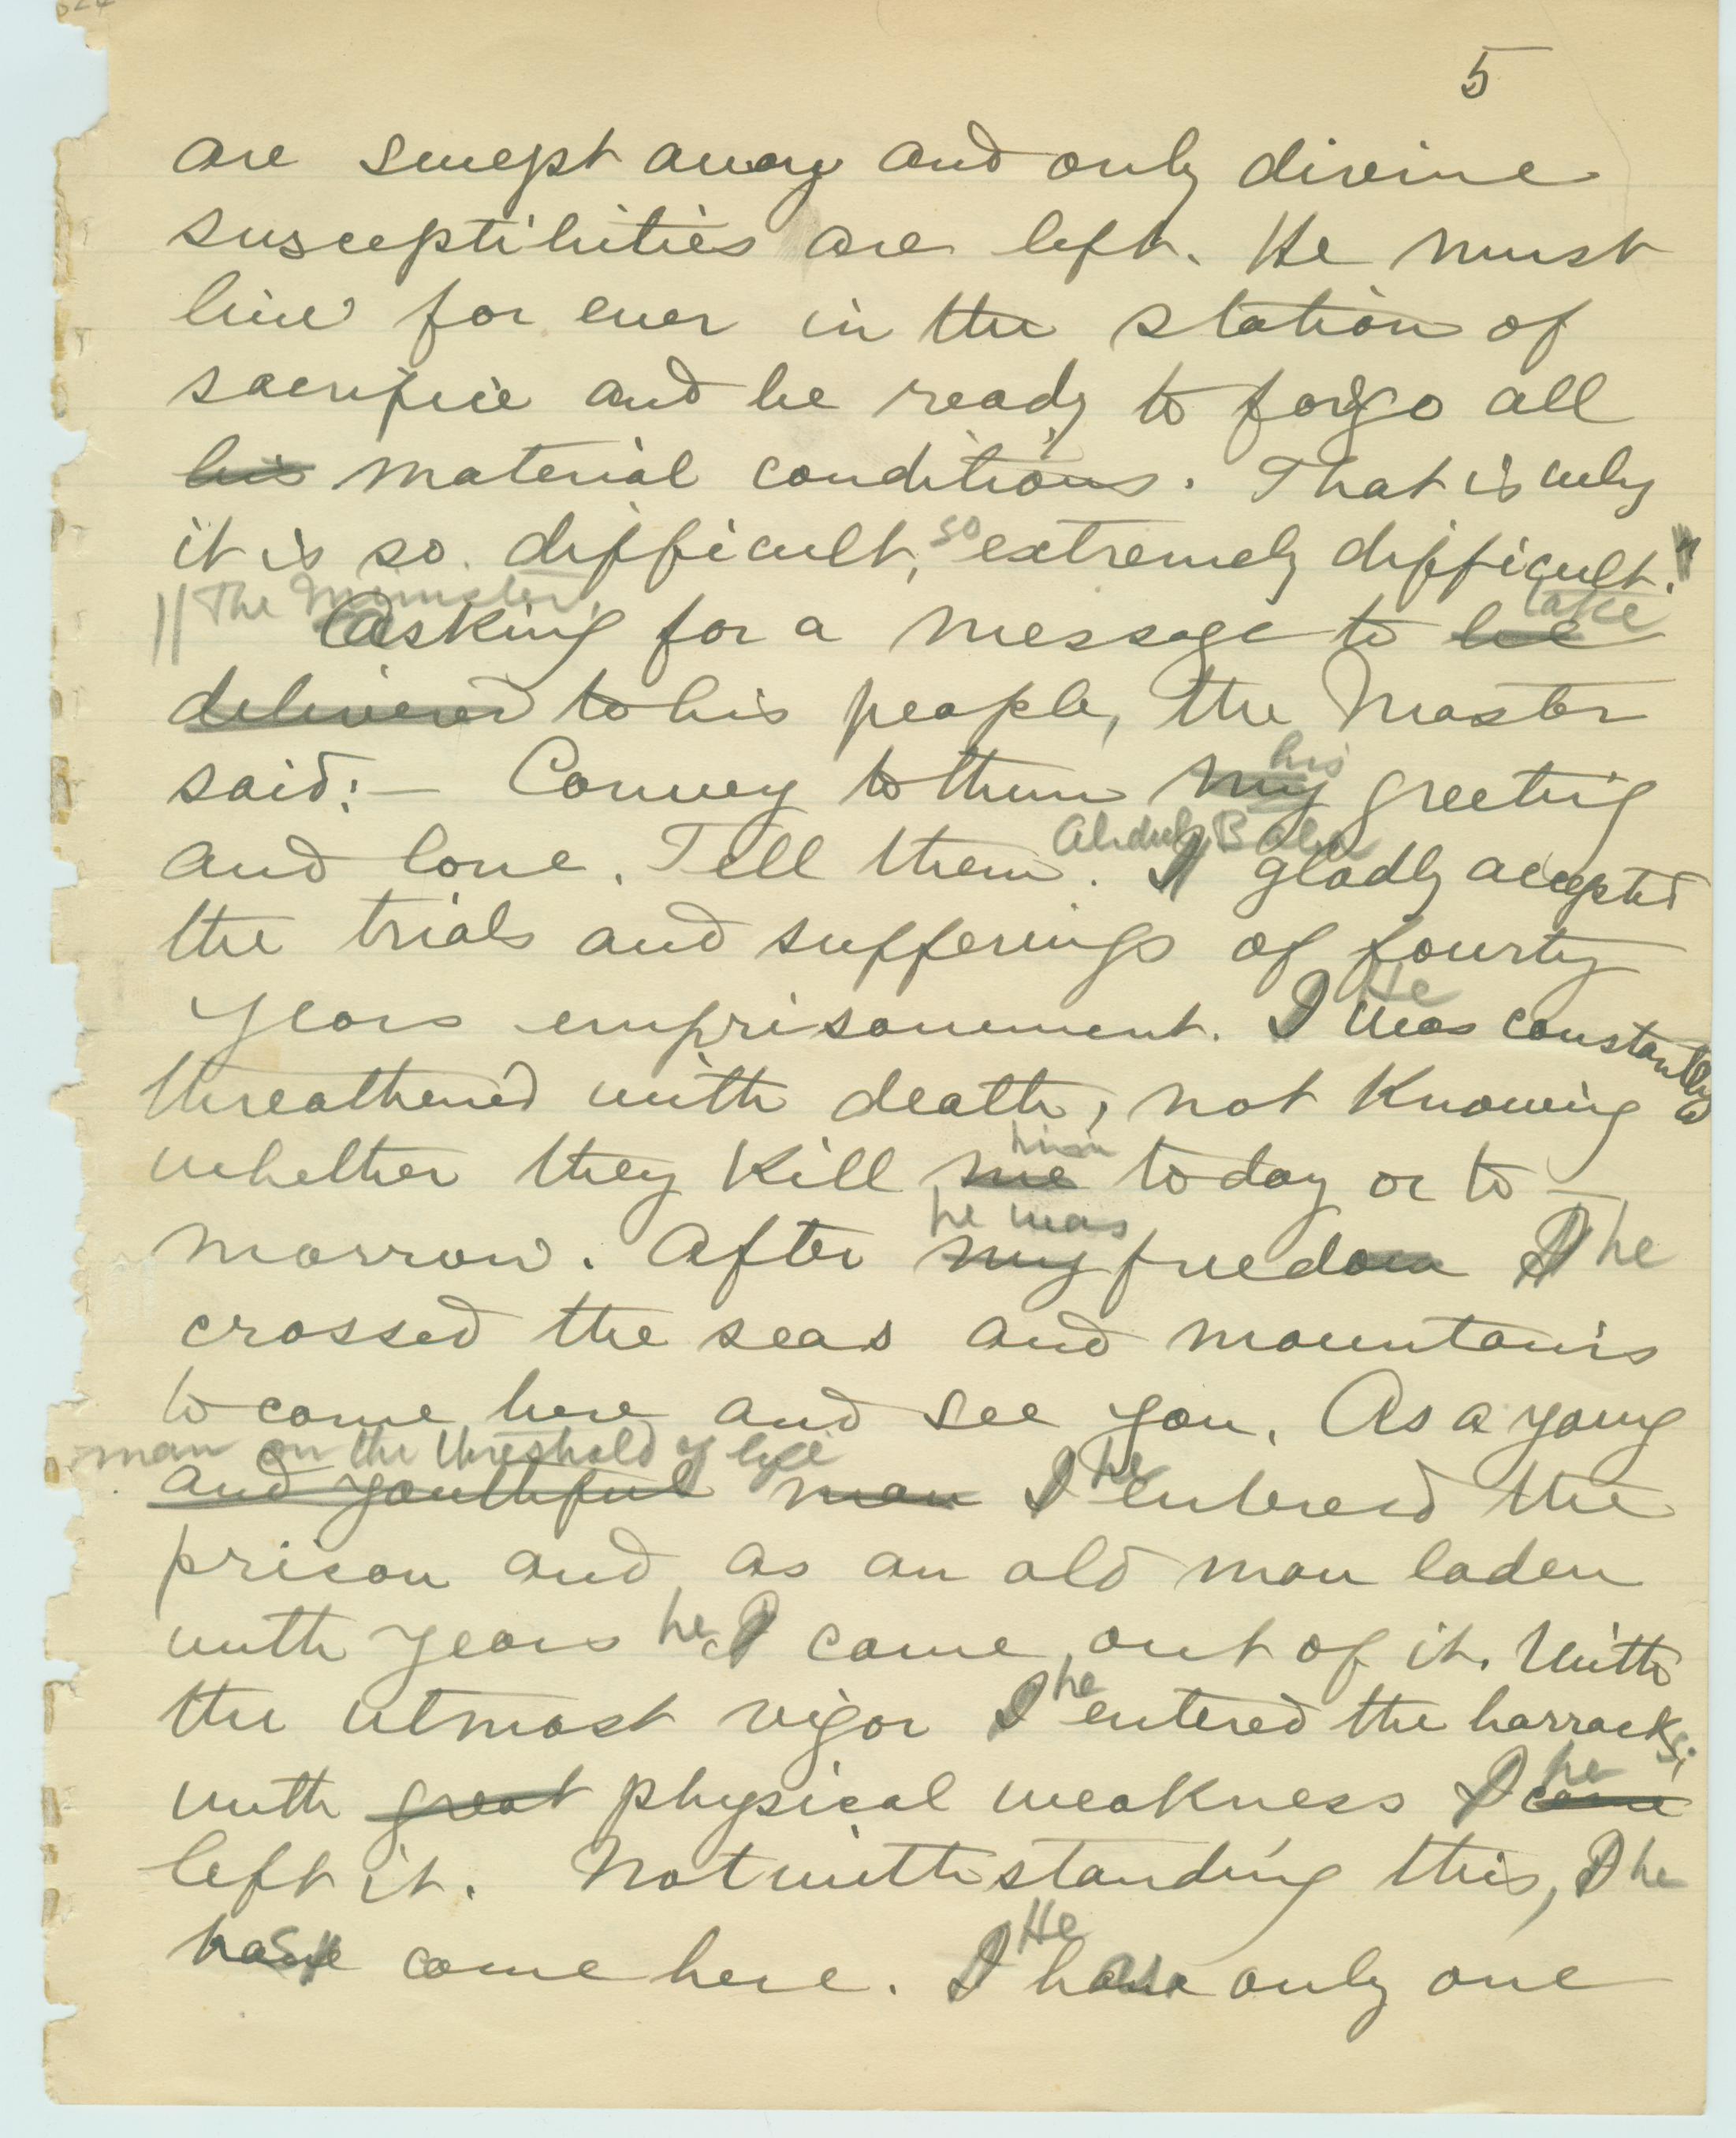 5
are swept away and only divine
susceptibilities are left. He must
live for ever in the station of
sacrifice and be ready to forgo all
his material conditions. That is why
it is so difficult, so extremely difficult."
|| The Minister,
Asking for a message to be take
delivered to his people, the Master
said:— Convey to them my his greeting
and love. Tell them. Abdul Baha I gladly accepted
the trials and sufferings of fourty
years emprisonment. I He was constantly
threathened with death, not knowing
whether they kill me him today or to-
morrow. After my he was freedom I he
crossed the seas and mountains
to come here and see you. As a young
man on the threshold of life
and youthful man I he entered the
prison and as an old man laden
with years he I came out of it. With
the utmost vigor I he entered the barracks;
with great physical weakness I he came
left it. Notwithstanding this, I he
have come here. I He have only one